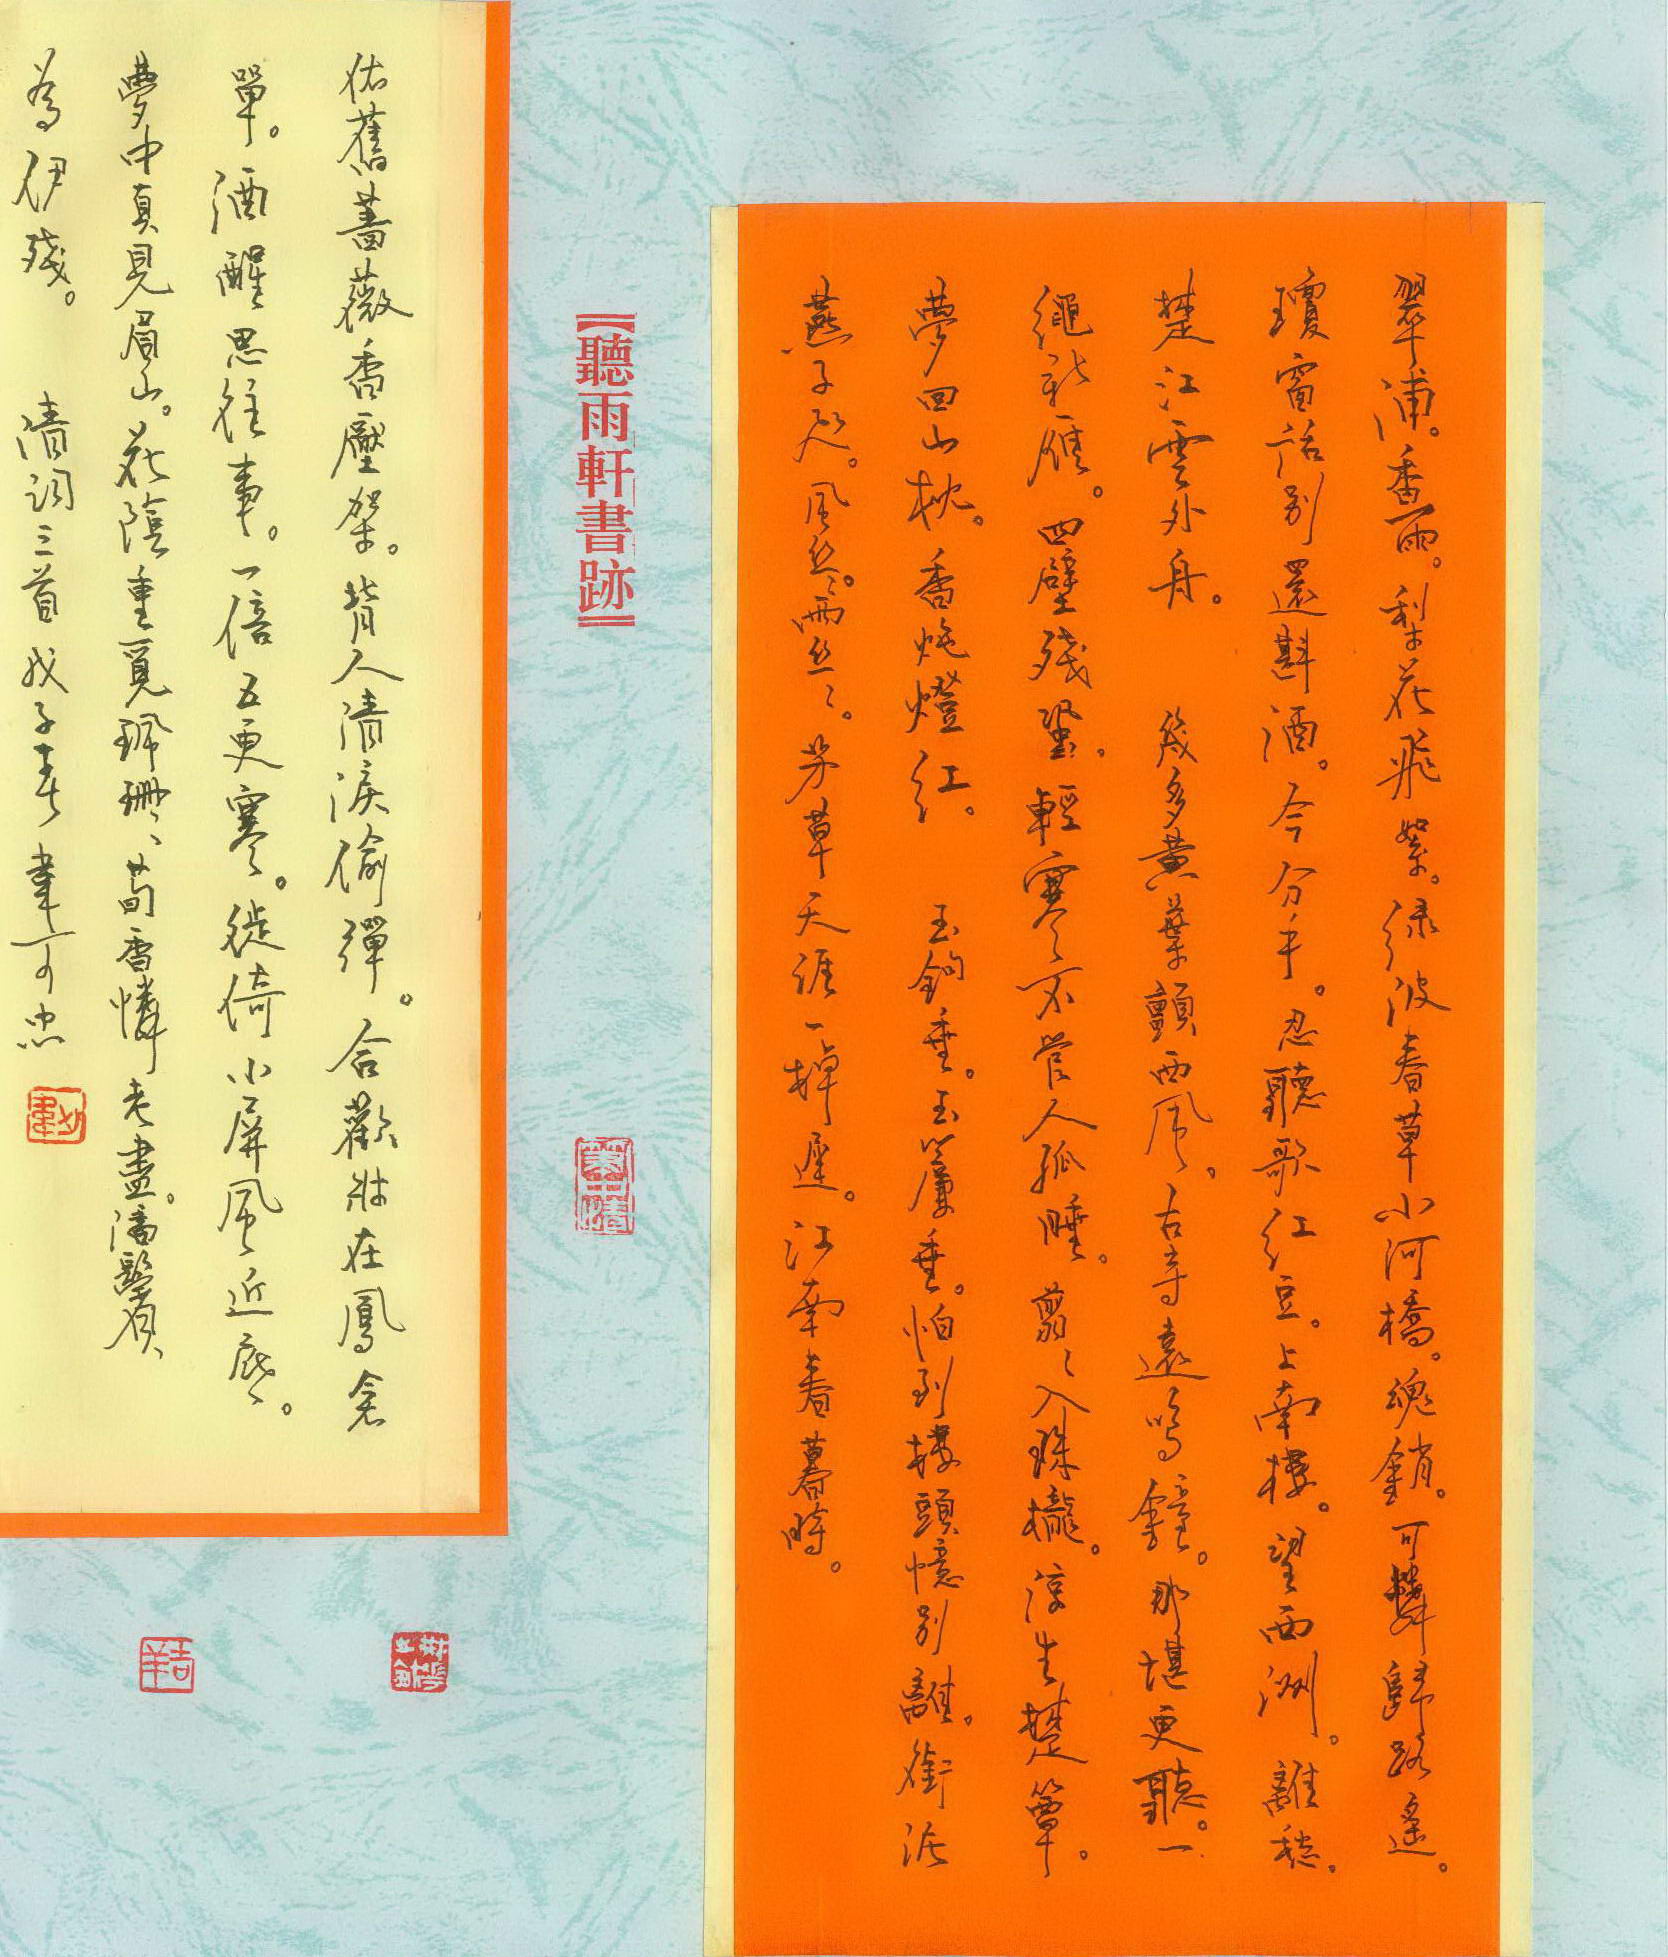 翠浦。香雨。梨花飛絮。綠波春草小河橋。魂銷。可憐歸路遙。
瓊窗話別還斟酒。今分手。忍聽歌紅豆。上南樓。望西洲。離愁。
楚江雲外舟。 幾多黃葉顫西風。古寺遠鳴鐘。那堪更聽。一
繩新雁。四壁殘蛩。輕寒不管人孤睡。翦翦入珠櫳。涼生楚簟。
夢回山枕。香灺燈紅。 玉鉤垂。玉簾垂。怕到樓頭憶別離。銜泥
燕子飛。風絲絲。雨絲絲。芳草天涯一棹遲。江南春暮時。
【聽雨軒書跡】
依舊薔薇香壓架。背人清淚偷彈。合歡牀在鳳衾
單。酒醒思往事。一倍五更寒。徙倚小屏風近底。
夢中真見眉山。花陰重覓珮珊珊、荀香憐老盡。潘鬢
為伊殘。 清詞三首戊子春韋一忠